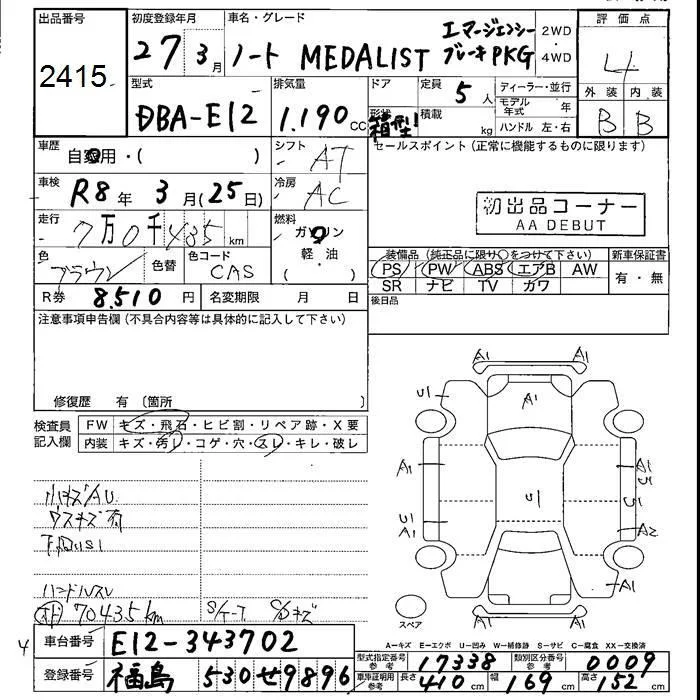 出品番号
2415
初度登録年月
27 3 月
車名・グレード
ノート MEDALIST エマージェンシー
ブレーキPKG
2WD
4WD
評価点
4
外装 内装
B B
型式
DBA-E12
排気量
1.190 CC
ドア
形状
箱型
定員
5 人
積載
kg
ディーラー・並行
モデル年式 年
ハンドル 左・右
車歴
自家用・( )
シフト
AT
セールスポイント(正常に機能するものに限ります)
車検
R8 年 3 月(25日)
冷房
AC
初出品コーナー
AA DEBUT
走行
7万0千435 km
燃料
ガソリン
軽・油
( )
色
ブラウン
色替
色コード
CAS
装備品(純正品に限り○をつけて下さい)
PS PW ABS エアB AW
SR ナビ TV カワ
新車保証書
有・無
R券 8,510 円
名変期限 月 日
後日品
注意事項申告欄(不具合内容等は具体的に記入して下さい)
修復歴 有(箇所 )
検査員
記入欄
FW キズ・飛石・ヒビ割・リペア跡・X要
内装 キズ・汚レ・コゲ・穴・スレ・キレ・破レ
小キズAU
ウスキズ有
ハンドルスレ
70435km
A1 A1
U1 A1
A1 A1
U1
U1
A1 A2
A1
A1 A1
スペア
A-キズ E-エクボ U-凹み W-補修跡 S-サビ C-腐食 XX-交換済
4
車台番号
E12-343702
型式指定番号
参考
17338
類別区分番号
参考
0009
登録番号
福島 530せ9896
車庫証明用
参考
長さ 410 cm 幅 169 cm 高さ 152 cm